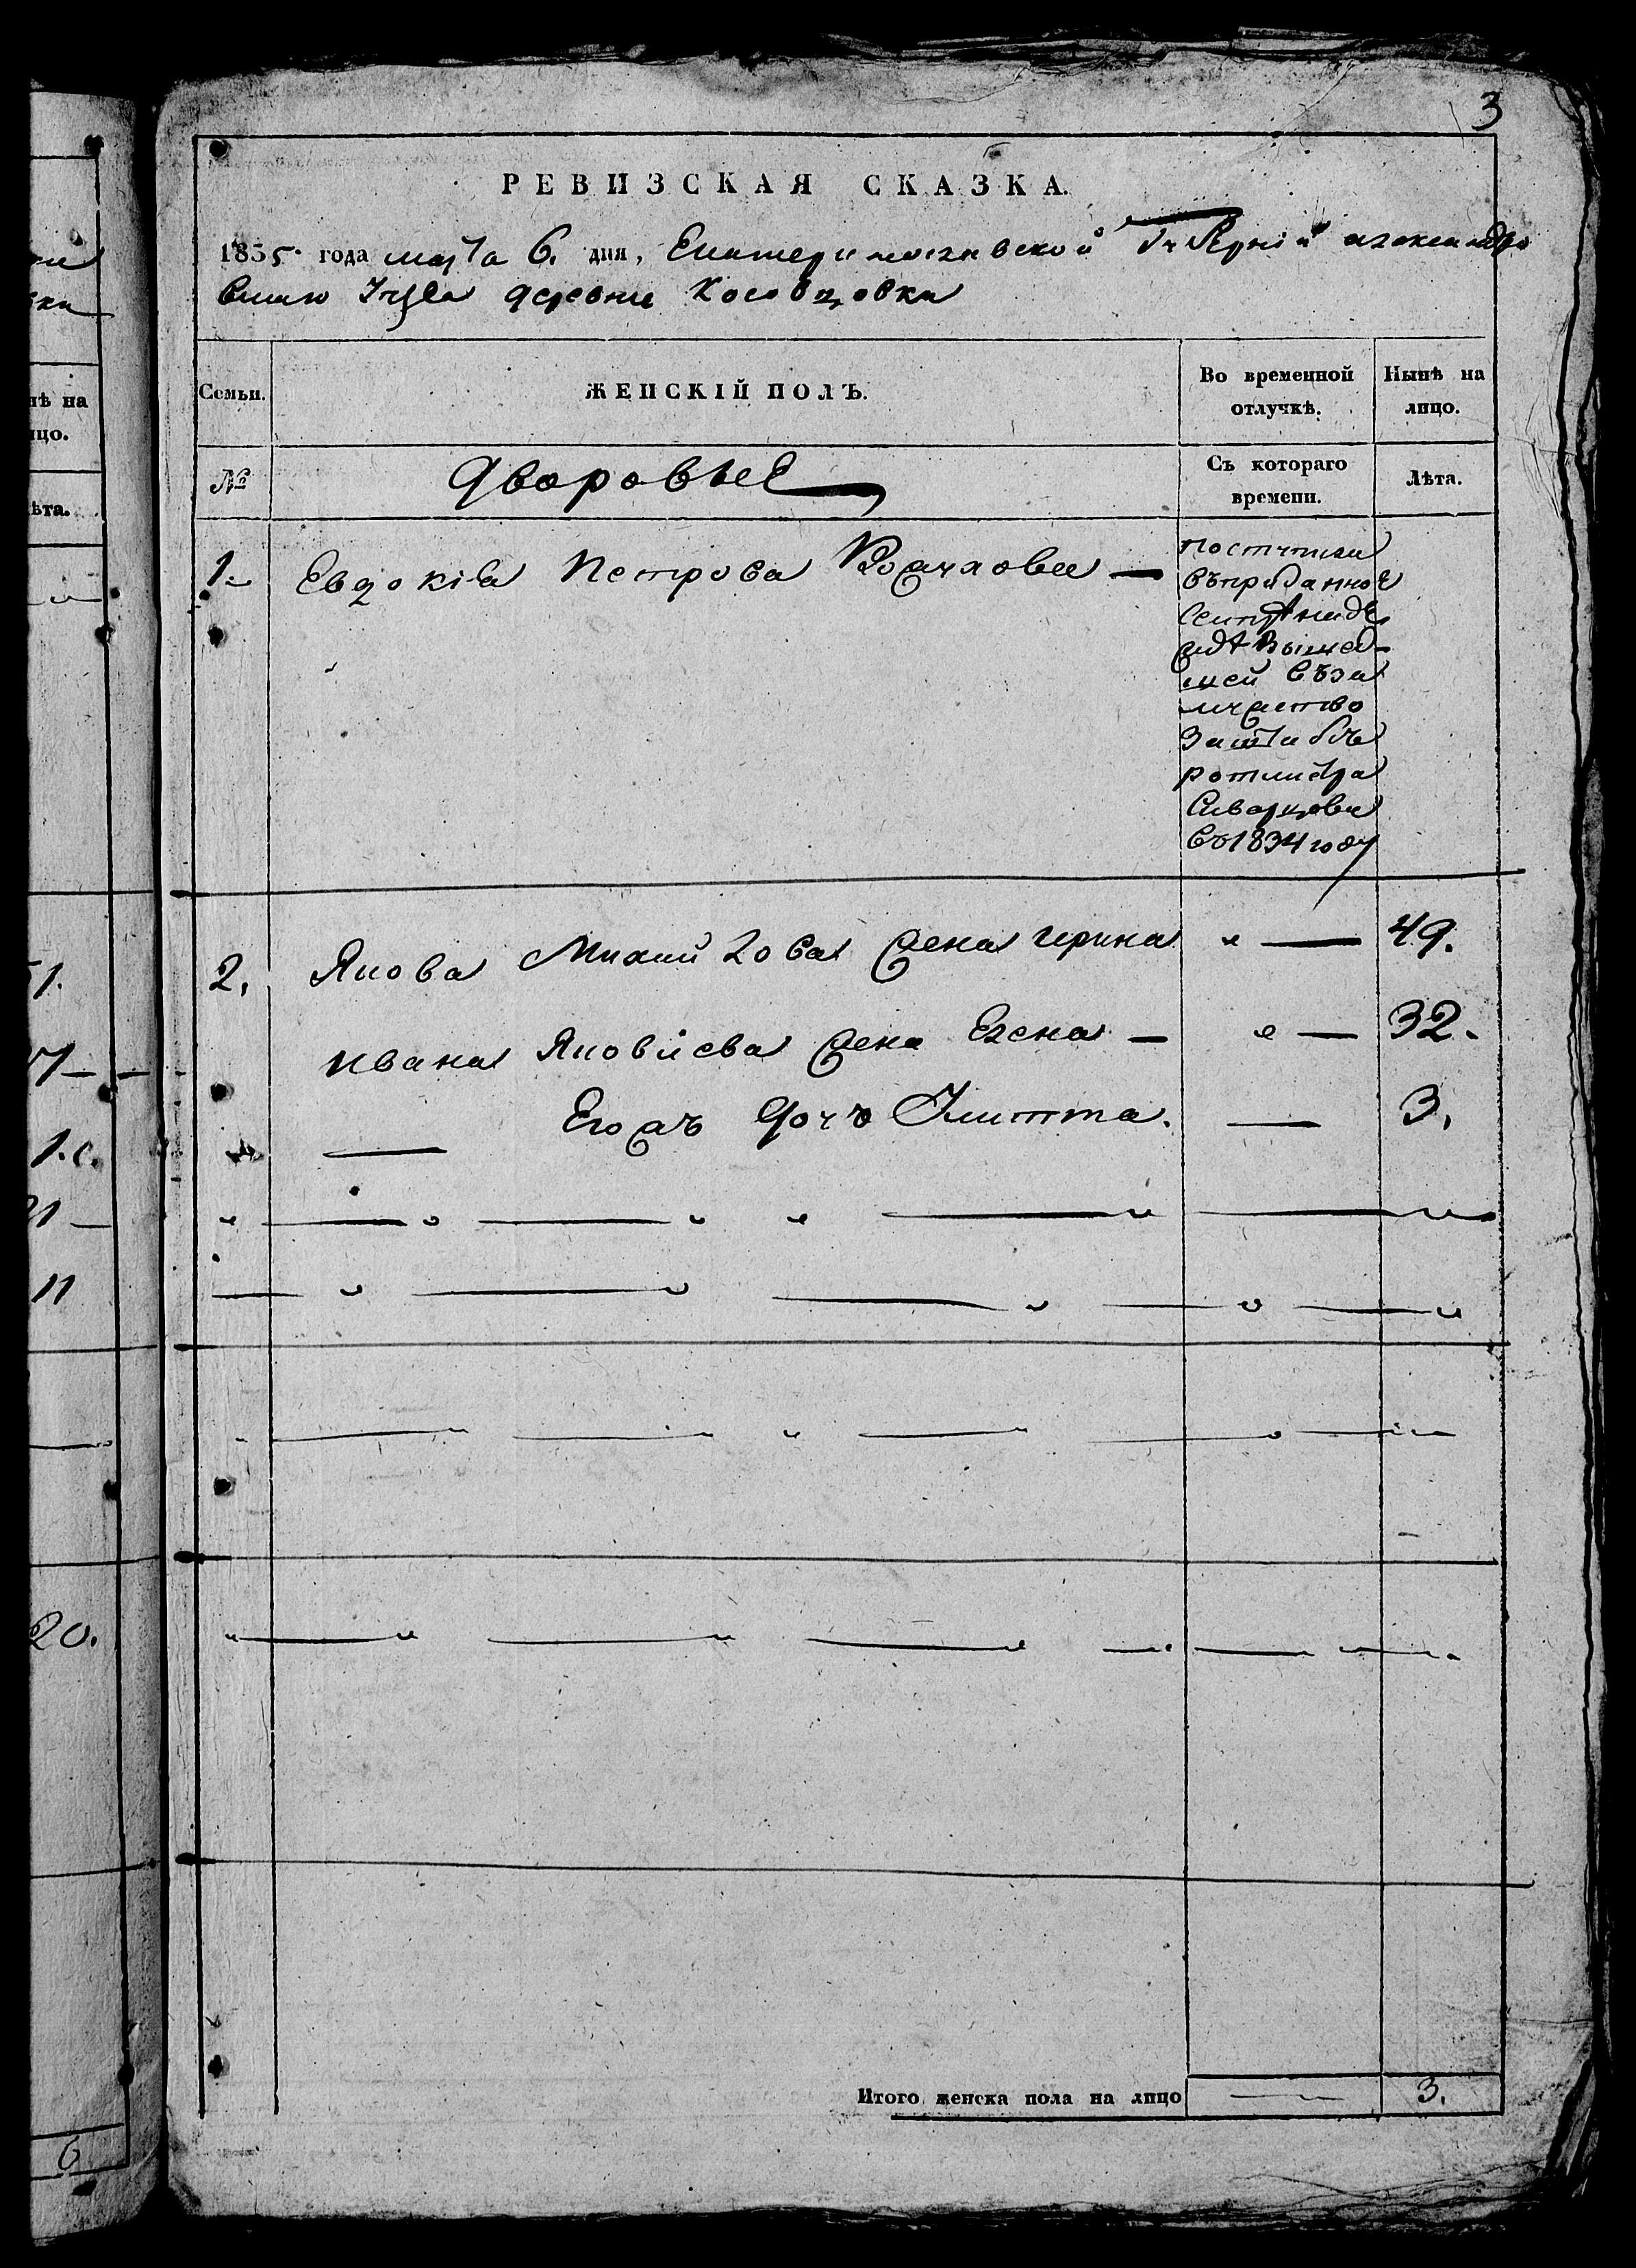 3
РЕВИЗСКАЯ СКАЗКА.
1835. года марта 6. дня, Екатеринославской Губерніи александро
вскаго Уезда деревни
Семьи.
ЖЕНСКІЙ ПОЛЪ.
Во временной отлучкѣ.
Нынѣ на лицо.
№
Дворовые
Съ котораго времени.
Лѣта.
1.
Евдокіа Петрова
поступила
въ приданное
вышед-
шей въ за
мужество
за штабъ
ротмистра
въ 1834 году
2.
Якова Михайлова жена ирина 49.
ивана Яковлева жена Елена — 32.
Егожъ дочь Улитта. 3.
Итого женска пола на лицо 3.
нѣ на
ицо.
ѣта.
1.
1.с.
11
20.
6